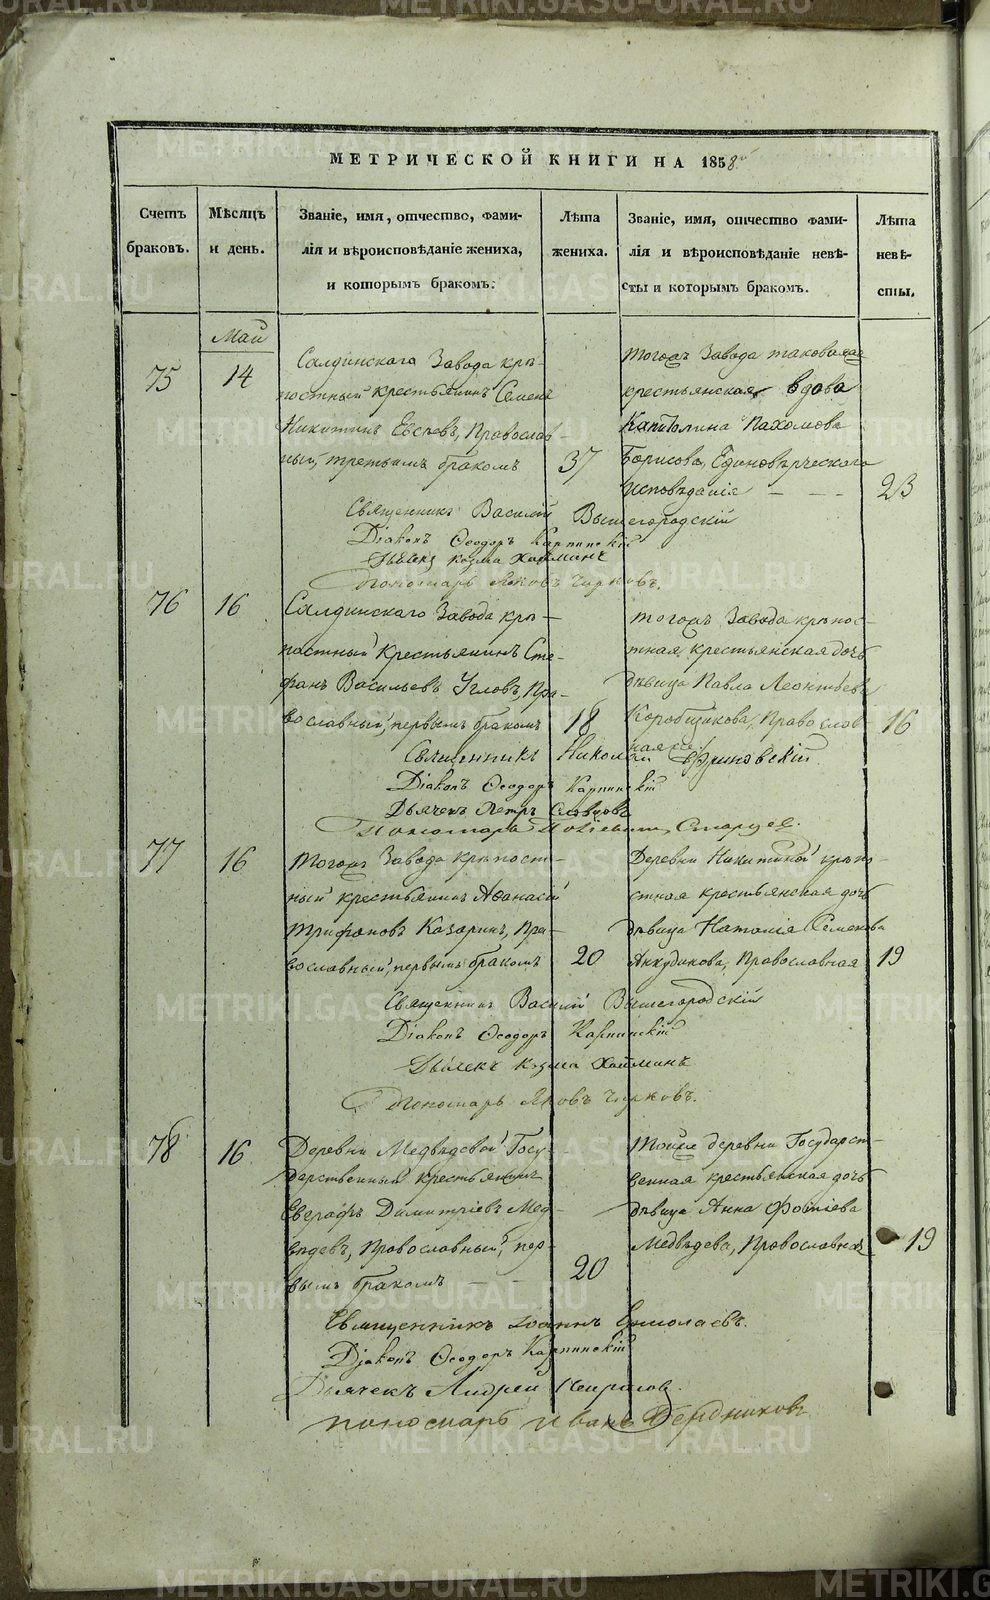 METRIKI.GASO-URAL.RU
МЕТРИЧЕСКОЙ КНИГИ НА 1858й
Счетъ браковъ.
Мѣсяцъ и день.
Званіе, имя, отчество, фами-
лія и вѣроисповѣданіе жениха,
и которымъ бракомъ.
Лѣта жениха.
Званіе, имя, отчество фами-
лія и вѣроисповѣданіе невѣ-
сты и которымъ бракомъ.
Лѣта невѣ-
сты.
Май
75
14
Салдинскаго Завода крѣ-
постный крестьянинъ Семенъ
Никитинъ Евсѣевъ, Православ-
ный, третьимъ бракомъ
37
тогожъ Завода таковаяже
крестьянская вдова
Капитолина Пахомова
Борисова, Единовѣрческаго
исповѣданія
23
Священникъ Василій Вышегородскій
Діаконъ Ѳеодоръ Карпинскій
Дьячекъ Козма Хайминъ
Пономарь Яковъ Чирковъ.
76
16
Салдинскаго Завода крѣ-
постный крестьянинъ Сте-
фанъ Васильевъ Угловъ, Пра-
вославный, первымъ бракомъ
18
тогожъ Завода крѣпос-
тная крестьянская дочь
дѣвица Павла Леонтьева
Коробщикова, Православ-
ная
16
Священникъ Николай
Діаконъ Ѳеодоръ Карпинскій
Дьячекъ Петръ Словцовъ
Пономарь Старцев.
77
16
Тогожъ Завода крѣпост-
ный крестьянинъ Аѳанасій
Трифоновъ Казаринъ, Пра-
вославный, первымъ бракомъ
20
Деревни Никитиной крѣпо-
стная крестьянская дочь
дѣвица Наталія Семенова
Анкудинова, Православная
19
Священникъ Василій Вышегородскій
Діаконъ Ѳеодоръ Карпинскій
Дьячекъ Козма Хайминъ
Пономарь Яковъ Чирковъ.
78
16
Деревни Медвѣдевой Госу-
дарственный крестьянинъ
Евграфъ Димитріевъ Мед-
ведевъ, Православный, пер-
вымъ бракомъ
20
Тойже деревни Государст-
венная крестьянская дочь
дѣвица Анна Фотіева
Медвѣдева, Православная
19
Священникъ Іоаннъ Ермолаевъ.
Діаконъ Ѳеодоръ Карпинскій
Дьячекъ Андрей Некрасов.
пономарь Иванъ Бердниковъ